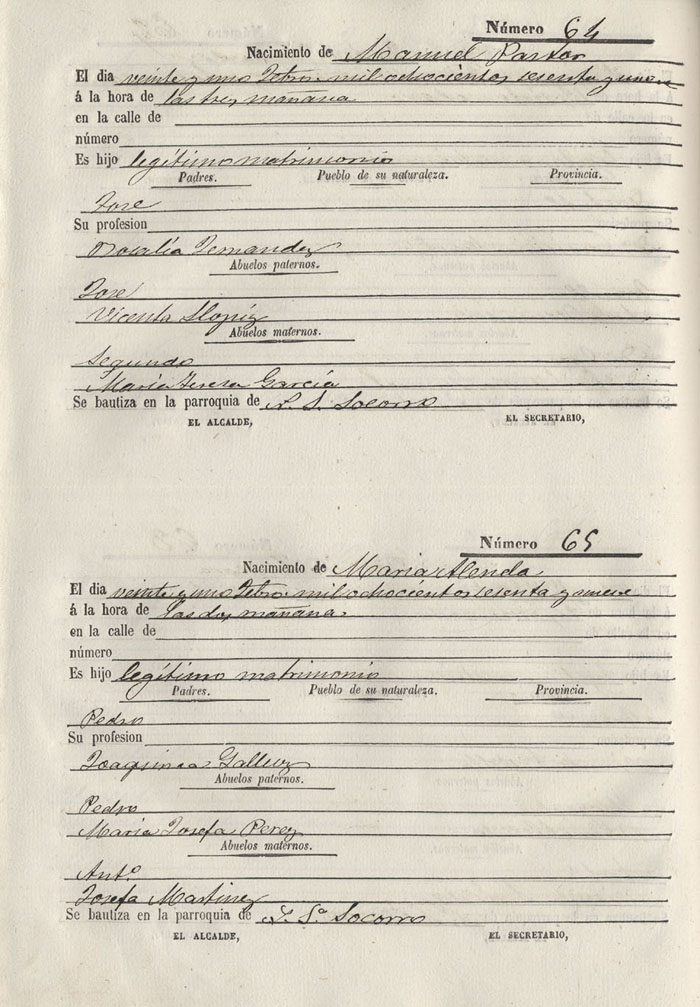 Número 64
Nacimiento de Manuel Pastor
El dia veinte y uno Febro. mil ochocientos sesenta y nueve
á la hora de las tres mañana
en la calle de
número
Es hijo legítimo matrimonio
Padres. Pueblo de su naturaleza. Provincia.
Jose
Su profesion
Rosalía Fernandez
Abuelos paternos.
José
Vicenta Llopiz
Abuelos maternos.
Segundo
Maria Teresa García
Se bautiza en la parroquia de S. Socorro
EL ALCALDE, EL SECRETARIO,
Número 65
Nacimiento de Maria Alenda
El dia veinte y uno Febro. mil ochocientos sesenta y nueve
á la hora de las dos mañana.
en la calle de
número
Es hijo legítimo matrimonio
Padres. Pueblo de su naturaleza. Provincia.
Pedro
Su profesion
Joaquina
Abuelos paternos.
Pedro
Maria Josefa Perez
Abuelos maternos.
Antº
Josefa Martinez
Se bautiza en la parroquia de Sª Socorro
EL ALCALDE, EL SECRETARIO,